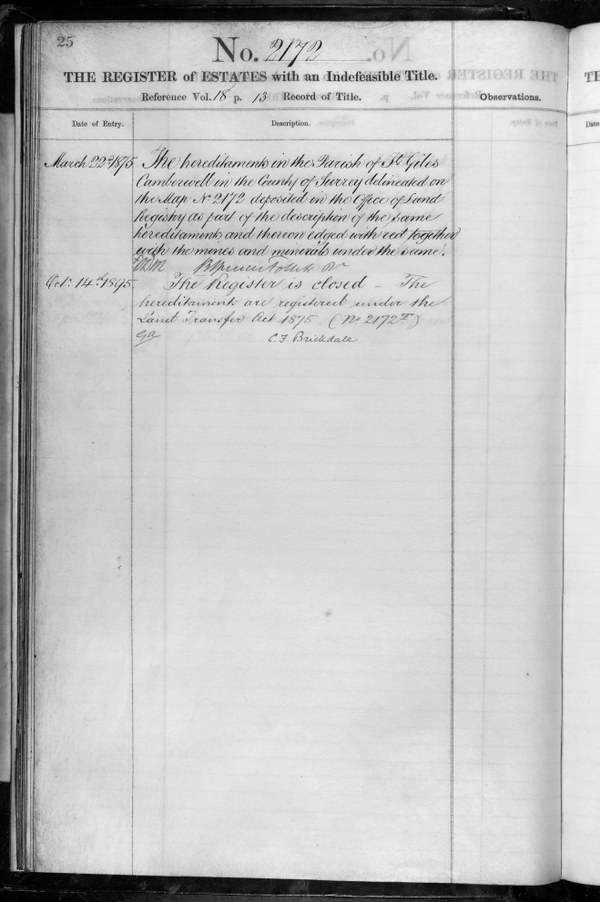 25
No. 2172
THE REGISTER of ESTATES with an Indefeasible Title.
Reference Vol. 18 p. 13 Record of Title.
Observations.
Date of Entry.
Description.
March 22d 1875
The hereditaments in the Parish of St. Giles
Camberwell in the County of Surrey delineated on
the Map No 2172 deposited in the Office of Land
Registry as part of the description of the same
hereditaments and thereon edged with red together
with the mines and minerals under the same.
Oct. 14th 1895.
The Register is closed – The
hereditaments are registered under the
Land Transfer Act 1875 (No 2172T)
C. F. Brickdale